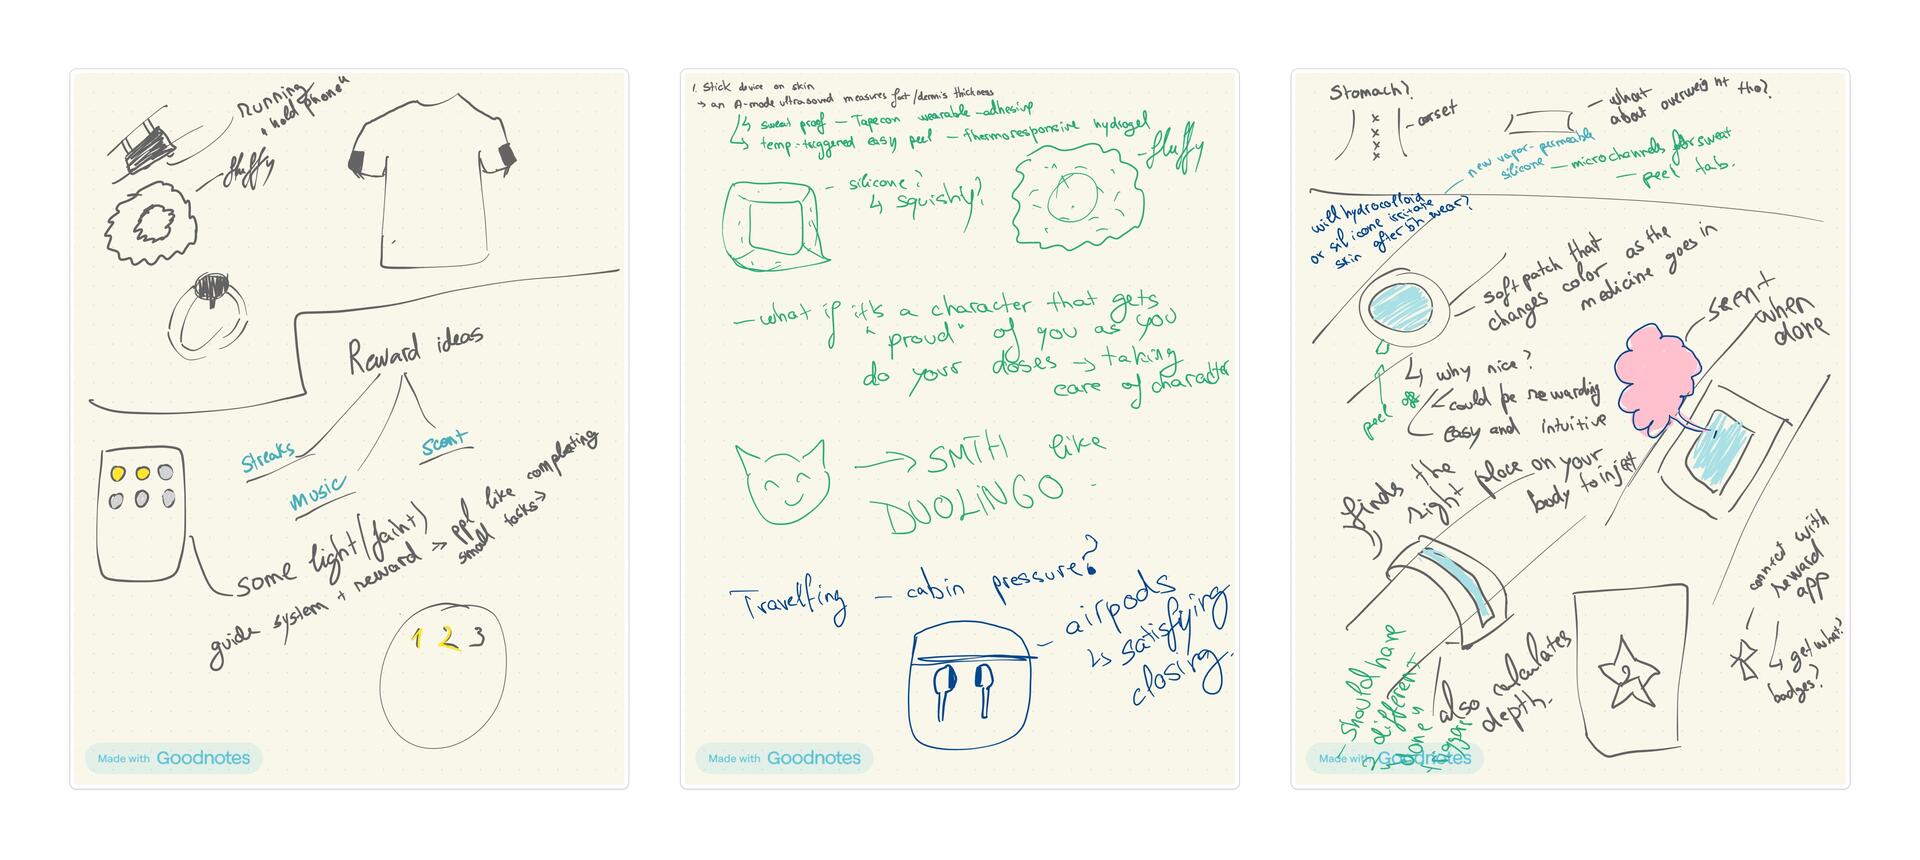 Running
"hold phone"
fluffy
Reward ideas
Streaks
Music
Scent
some light (faint)
guide system + reward => ppl like completing
small tasks
1 2 3
Made with Goodnotes
1. Stick device on skin
→ an A-mode ultrasound measures fat/dermis thickness
↳ sweat proof — Tapecon wearable adhesive
↳ temp-triggered easy peel — thermoresponsive hydrogel
- silicone?
↳ squishy?
- fluffy
- what if it's a character that gets
"proud" of you as you
do your doses → taking
care of character
→ SMTH like
DUOLINGO
Travelling - cabin pressure?
- airpods
↳ satisfying
closing.
Made with Goodnotes
Stomach?
- corset
- what
about overweight tho?
new vapor-permeable
silicone - microchannels for sweat
- peel tab.
will hydrocolloid
or silicone irritate
skin after 6h wear?
soft patch that
changes color as the
medicine goes in
peel off
↳ why nice?
could be rewarding
easy and intuitive
scent
when
done
finds the
right place on your
body to inject
also calculates
depth.
- should have
different
connect with
reward
app
↳ get what?
badges?
2
Made with Goodnotes